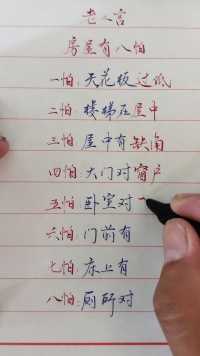 老人言
房屋有八怕
一怕:天花板过低
二怕:楼梯在屋中
三怕:屋中有缺角
四怕:大门对窗户
五怕:卧室对
六怕:门前有
七怕:床上有
八怕:厕所对